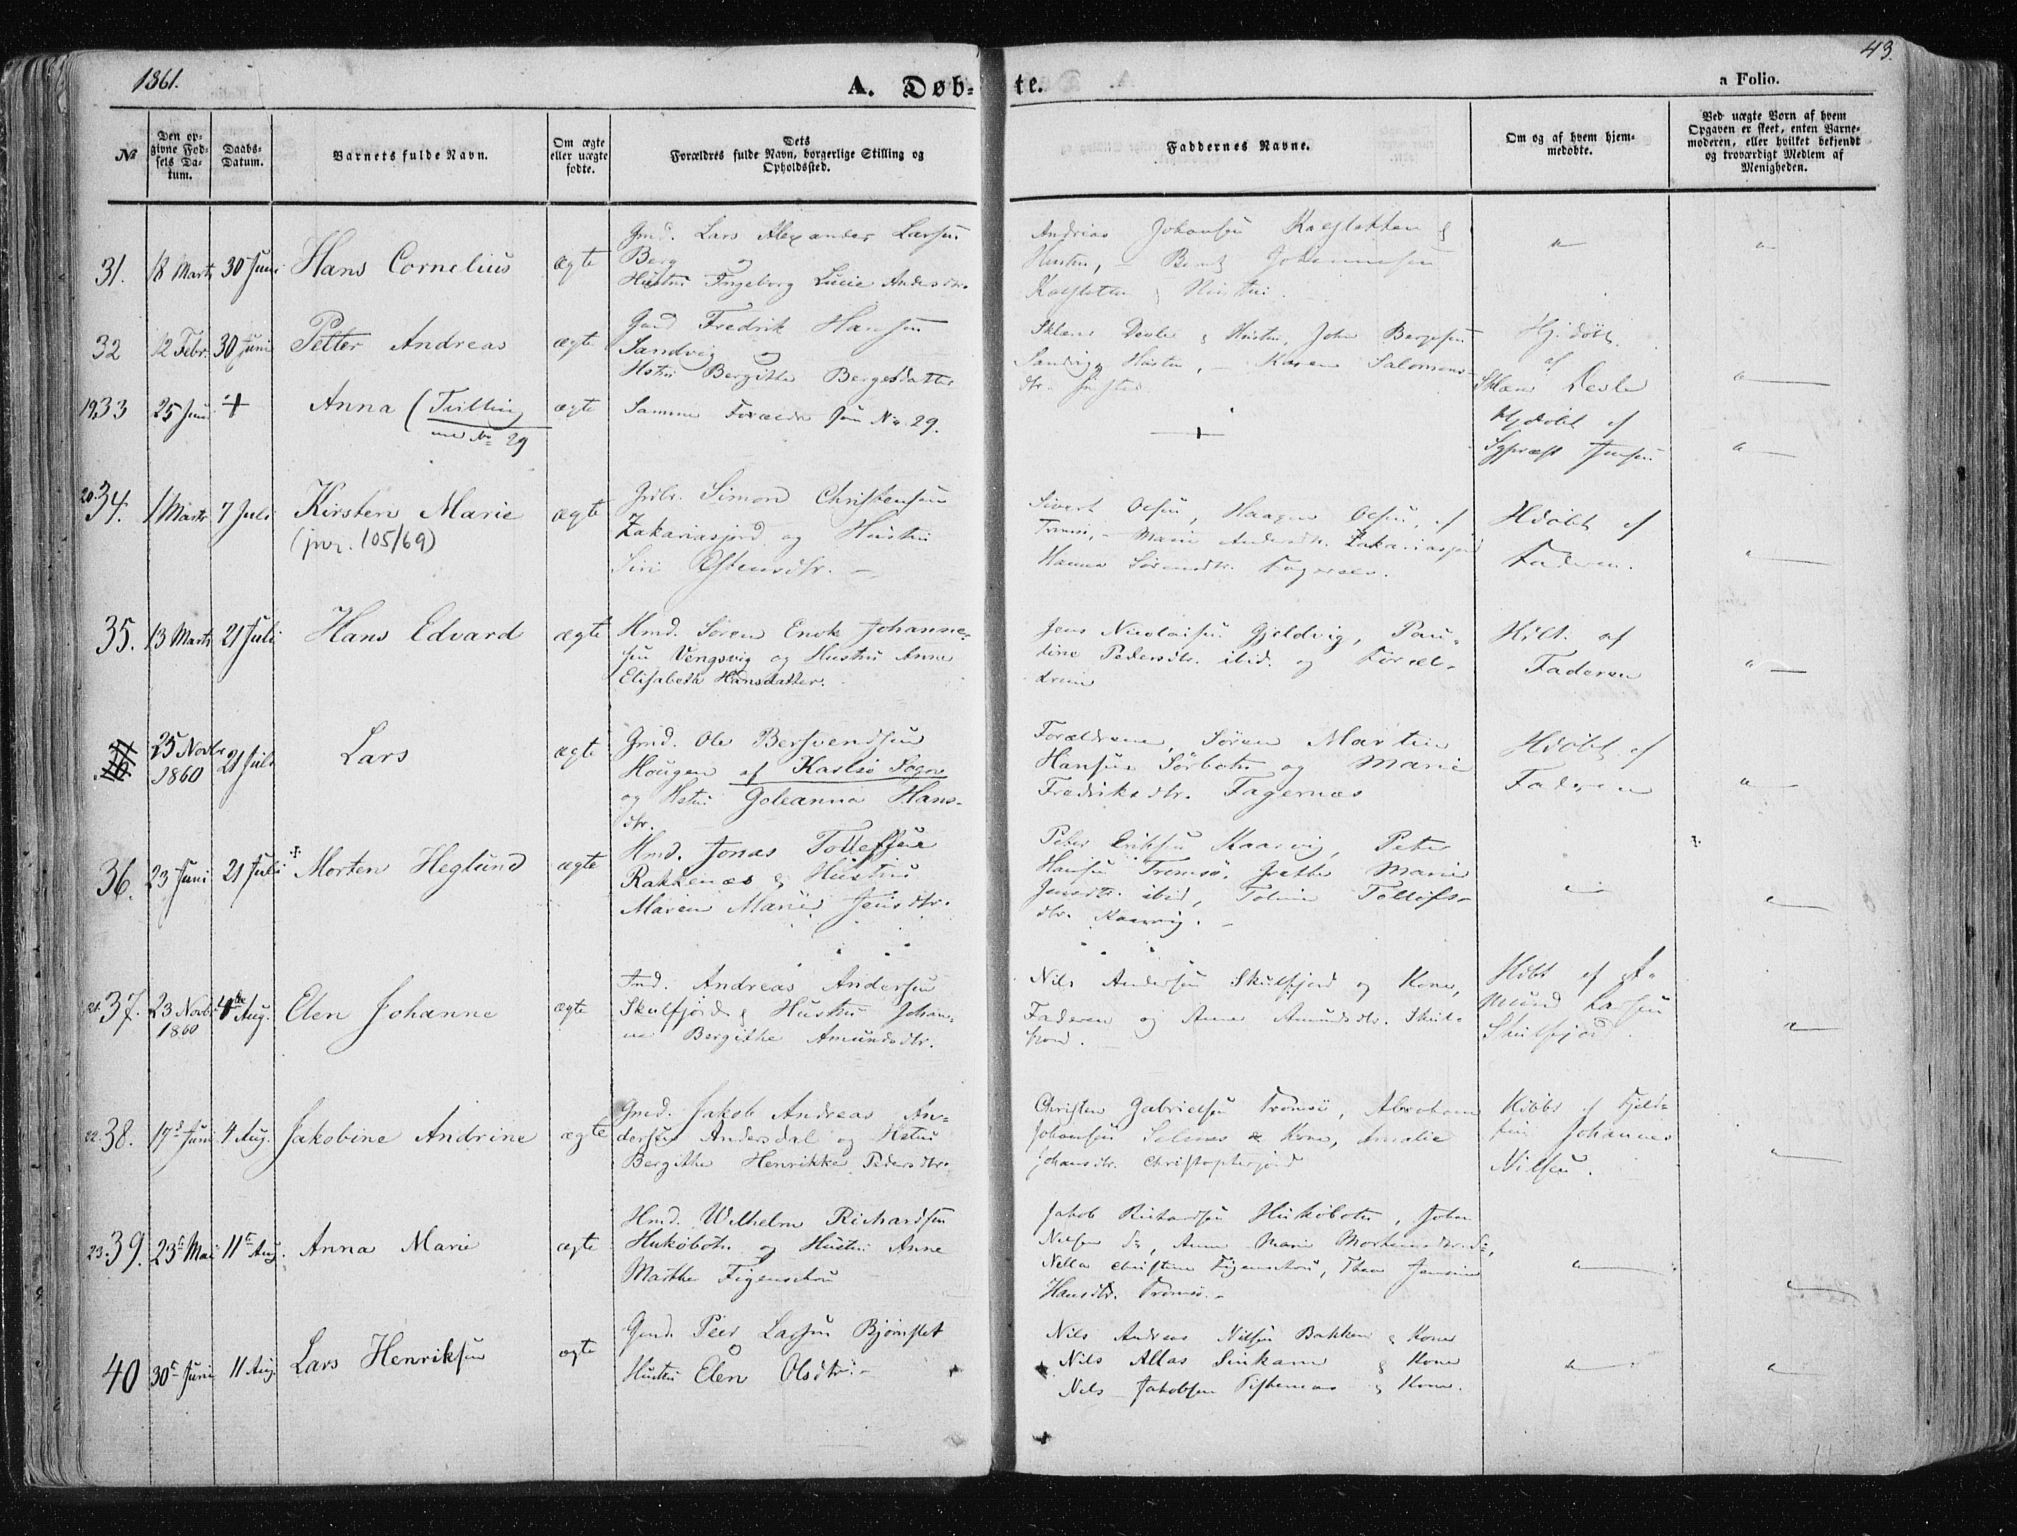 1861.
A. Døbte.
43.
a Folio.
No
Den opgivne Fødsels Datum.
Daabs-Datum.
Barnets fulde Navn.
Om ægte eller uægte fødte.
Dets Forældres fulde Navn, borgerlige Stilling og Opholdssted.
Faddernes Navne.
Om og af hvem hjemmedøbte.
Ved uægte Børn af hvem Opgaven er skeet, enten Barnemoderen, eller hvilket bekjendt og troværdigt Medlem af Menigheden.
31. 18 Marts 30 Juni Hans Cornelius ægte
Gmd. Lars Alexander Larsen
Berg og
Hustru Ingeborg Lucie Andersdtr.
Andreas Johansen
Hustru, Johannesen
32 12 Febr. 30 Juni Petter Andreas ægte
Gmd Fredrik Hansen
Sandvig og
Hstru Bergitte Bergesdatter
Hustru, John Bergesen
Sandvig Hustru, – Karen Salomons-
dtr.
Hj. döbt
af
33 25 Juni + Anna (Tvilling
med No 29
ægte
Samme Forældre No. 29.
+
Hjdöbt af
Jensen
20. 34. 1 Marts 7 Juli Kirsten Marie
(jvr. 105/69)
ægte
Simon Christensen
Zakariasjord og Hustru
Siri Østensdtr. –
Sivert Olsen, Haagen Olsen, af
Tromsö, – Marie Andersdtr. Zakariasjord
Hanna Sörensdtr.
Hdöbt af
Faderen.
35. 13 Marts 21 Juli Hans Edvard ægte
Hmd. Sören Enok Johanne-
sen Vengsvig og Hustru Anne
Elisabeth Hansdatter.
Jens Nicolaisen Gjeldvig, Pau-
line Pedersdtr. ibid. og Foræl-
drene
af
Faderen
25 Novbr 1860 21 Juli Lars ægte
Gmd. Ole Bersvendsen
Hougen af Karlsö Sogn
og Hstru Goleanna Hans-
dtr.
Forældrene, Sören Martin
Hansen Sörbotn og Marie
Fredriksdtr. Fagernæs
Hdöbt af
Faderen
36. 23 Juni 21 Juli Morten Heglund ægte
Hmd. Jonas Tollefsen
Rakkenæs & Hustru
Maren Marie Jensdtr.
Peter Eriksen Kaarvig, Peter
Hansen Tromsö, Grethe Marie
Jensdtr. ibid, Tollefs-
dtr. Kaarvig. –
21. 37. 23 Novb. 1860 4de Aug. Elen Johanne ægte
Ind. Andreas Andersen
Skulfjord & Hustru Johan-
ne Bergithe Amundsdtr.
Nils Andersen Skulfjord og Kone,
Faderen og Anne Amundsdtr. Skul-
fjord.
af A-
mund Larsen
Skulfjord.
22. 38. 17 Juni 4 Aug. Jakobine Andrine ægte
Gmd. Jakob Andreas An-
dersen Andersdal og Hstru
Bergithe Henrikke Pedersdtr.
Christen Gabrielsen Tromsö, Abraham
Johansen Selnes & Kone, Amalie
Johansdtr. Christophersjord
af
Johannes
Nilsen.
23. 39. 23 Mai 11 Aug. Anna Marie ægte
Hmd. Wilhelm Richardsen
Hukobotn og Hustru Anne
Marthe Figenschou
Jakob Richardsen Hukobotn, John
Nilsen do, Anne Marie Mortensdtr. do,
Christine Figenschou, Jensine
Hansdtr. Tromsö. –
40 30 Juni 11 Aug. Lars Henriksen ægte
Gmd. Peer Larsen
Hustru Elen Olsdtr. –
Nils Andreas Nilsen Bakken & Kone
Nils & Kone
Nils Jakobsen & Kone.